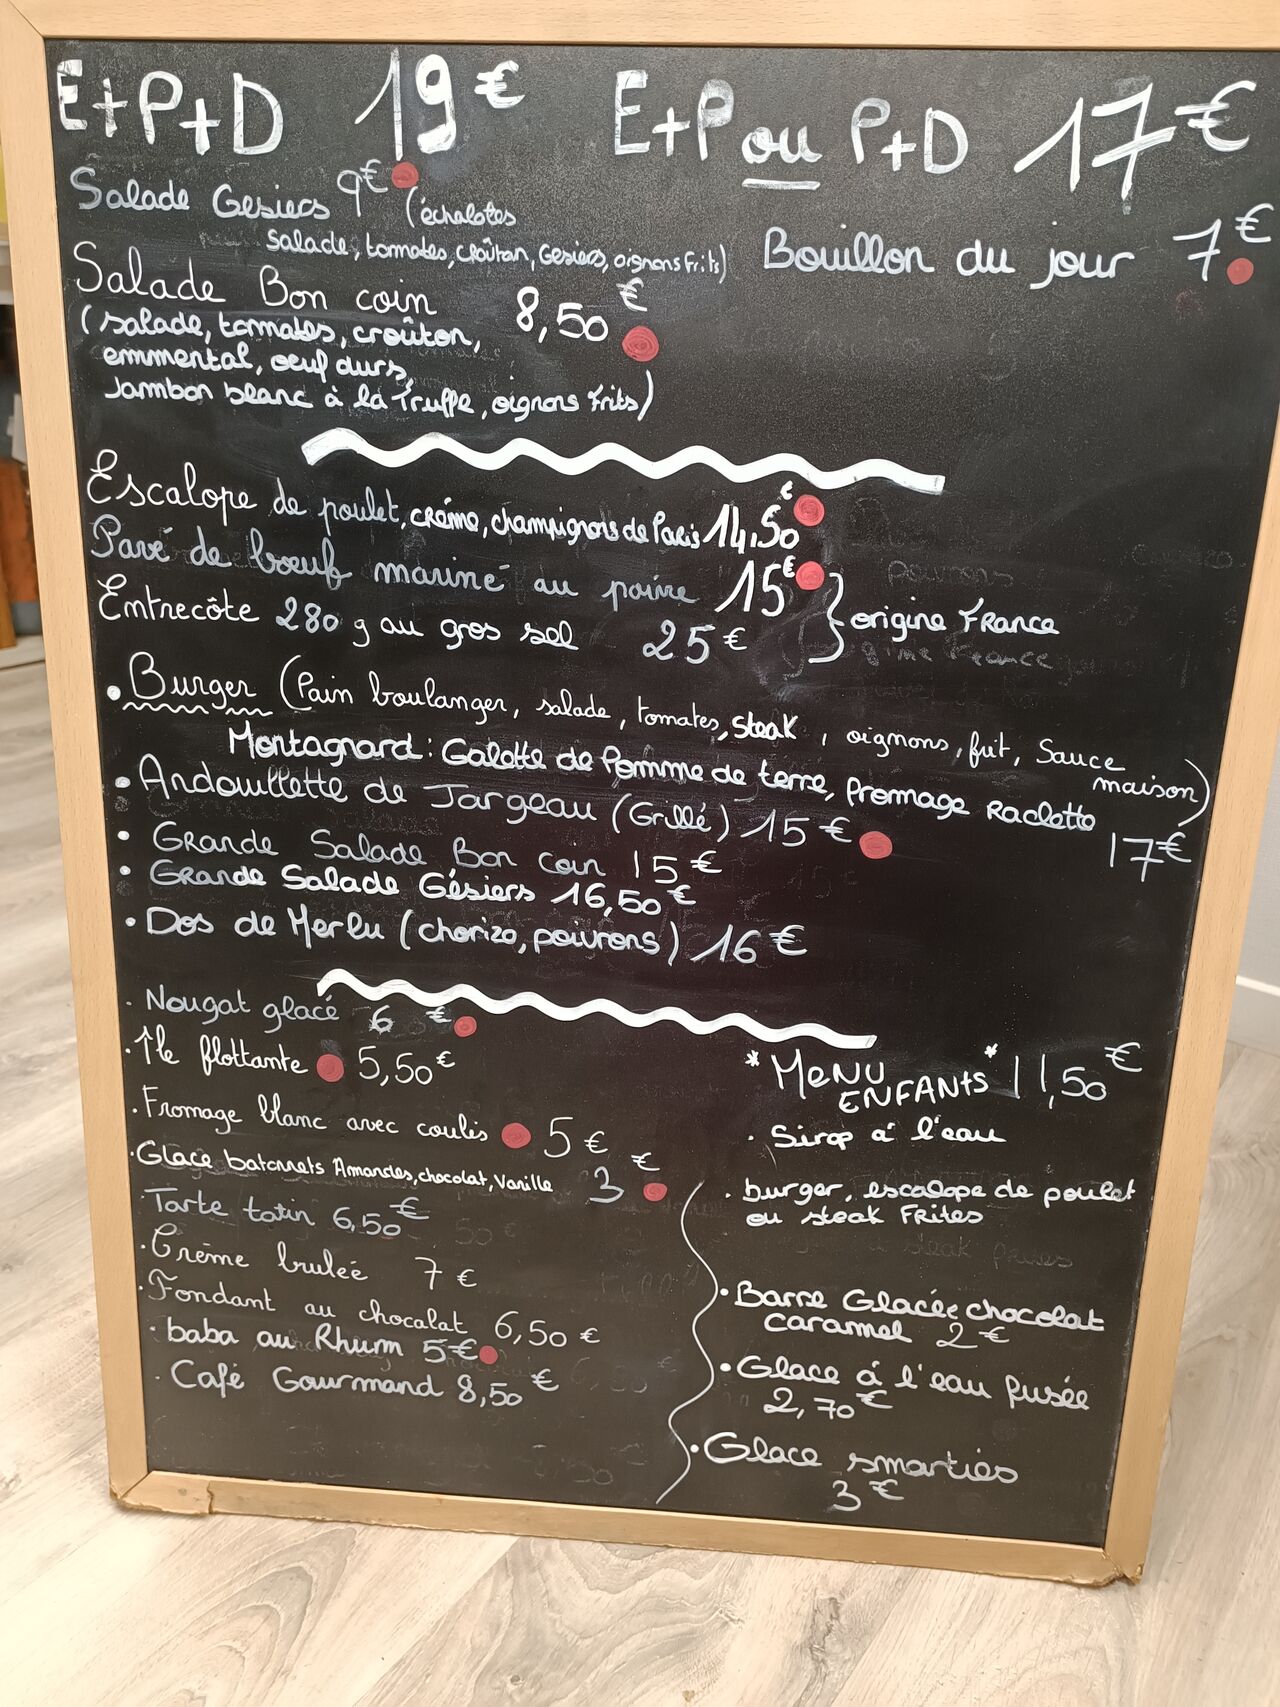 E+P+D 19€ E+P ou P+D 17€
Salade Gesiers 9€ (échalotes
salade, tomates, croûton, Gesiers, oignons Frits)
Bouillon du jour 7€
Salade Bon coin 8,50€
(salade, tomates, croûton,
emmental, oeuf durs,
Jambon blanc à la Truffe, oignons Frits)
Escalope de poulet, crème, champignons de Paris 14,50€
Pavé de boeuf mariné au poivre 15€
Entrecôte 280 g au gros sel 25€
origine France
• Burger (Pain boulanger, salade, tomates, steak, oignons, frit, Sauce
maison)
Montagnard: Galette de Pomme de terre, fromage Raclette
17€
• Andouillette de Jargeau (Grillé) 15€
• Grande Salade Bon coin 15€
• Grande Salade Gésiers 16,50€
• Dos de Merlu (chorizo, poivrons) 16€
· Nougat glacé 6€
· île flottante 5,50€
· Fromage blanc avec coulis 5€
· Glace batonnets Amandes, chocolat, Vanille 3€
Tarte tatin 6,50€
· Crème brulée 7€
· Fondant au chocolat 6,50€
· baba au Rhum 5€
· Café Gourmand 8,50€
* Menu * 11,50€
ENFANTS
· Sirop à l'eau
· burger, escalope de poulet
ou steak Frites
• Barre Glacée chocolat
caramel 2€
• Glace à l'eau fusée
2,70€
• Glace smarties
3€